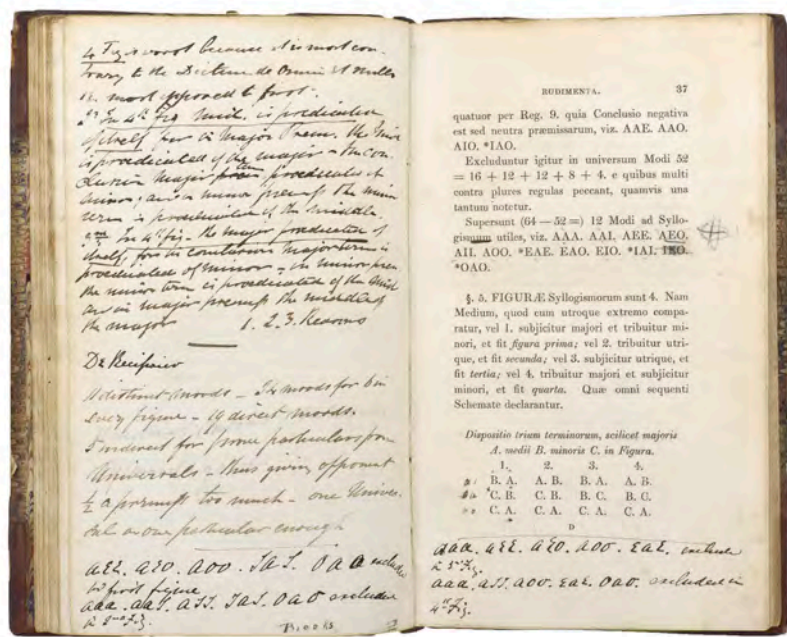 4 Fig is worst because it is most con-
trary to the Dictum de Omni et Nullo
is most opposed to first.
1st In 4th Fig Mid. is predicated
of itself for in Major Prem. the Mid
is predicated of the major - In Con-
clusion Major predicated of
minor; and in minor premiss the minor
term is predicated of the middle.
2nd In 4th fig - the major predicated of
itself, for in conclusion major term is
predicated of minor - in minor prem
the minor term is predicated of the mid
and in major premiss the middle of
the major 1. 2. 3. Reasons
11 distinct moods - 24 moods for 6 in
every figure - 19 direct moods.
5 indirect for prove particulars from
Universals - thus giving opponent
½ a premiss too much - one Univer-
sal or one particular enough
aEE. aEO. aOO. IaI. OaO excluded
in first figure
aaa. aaI. aII. IaI. OaO excluded
in 2nd Fig.
Brooks
RUDIMENTA. 37
quatuor per Reg. 9. quia Conclusio negativa
est sed neutra præmissarum, viz. AAE. AAO.
AIO. *IAO.
Excluduntur igitur in universum Modi 52
= 16 + 12 + 12 + 8 + 4. e quibus multi
contra plures regulas peccant, quamvis una
tantum notetur.
Supersunt (64 — 52 =) 12 Modi ad Syllo-
gismum utiles, viz. AAA. AAI. AEE. AEO.
AII. AOO. *EAE. EAO. EIO. *IAI. IEO.
*OAO.
§. 5. FIGURÆ Syllogismorum sunt 4. Nam
Medium, quod cum utroque extremo compa-
ratur, vel 1. subjicitur majori et tribuitur mi-
nori, et fit figura prima; vel 2. tribuitur utri-
que, et fit secunda; vel 3. subjicitur utrique, et
fit tertia; vel 4. tribuitur majori et subjicitur
minori, et fit quarta. Quæ omni sequenti
Schemate declarantur.
Dispositio trium terminorum, scilicet majoris
A. medii B. minoris C. in Figura.
1. 2. 3. 4.
B. A. A. B. B. A. A. B.
C. B. C. B. B. C. B. C.
C. A. C. A. C. A. C. A.
D
aaa. aEE. aEO. aOO. EaE. exclude
in 3d Fig.
aaa. aII. aOO. EaE. OaO. excluded in
4th Fig.